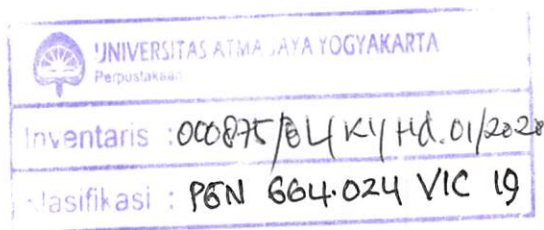 UNIVERSITAS ATMA JAYA YOGYAKARTA
Perpustakaan
Inventaris : 000875/BL/KY/Hd.01/2020
Klasifikasi : PGN 664.024 VIC 19